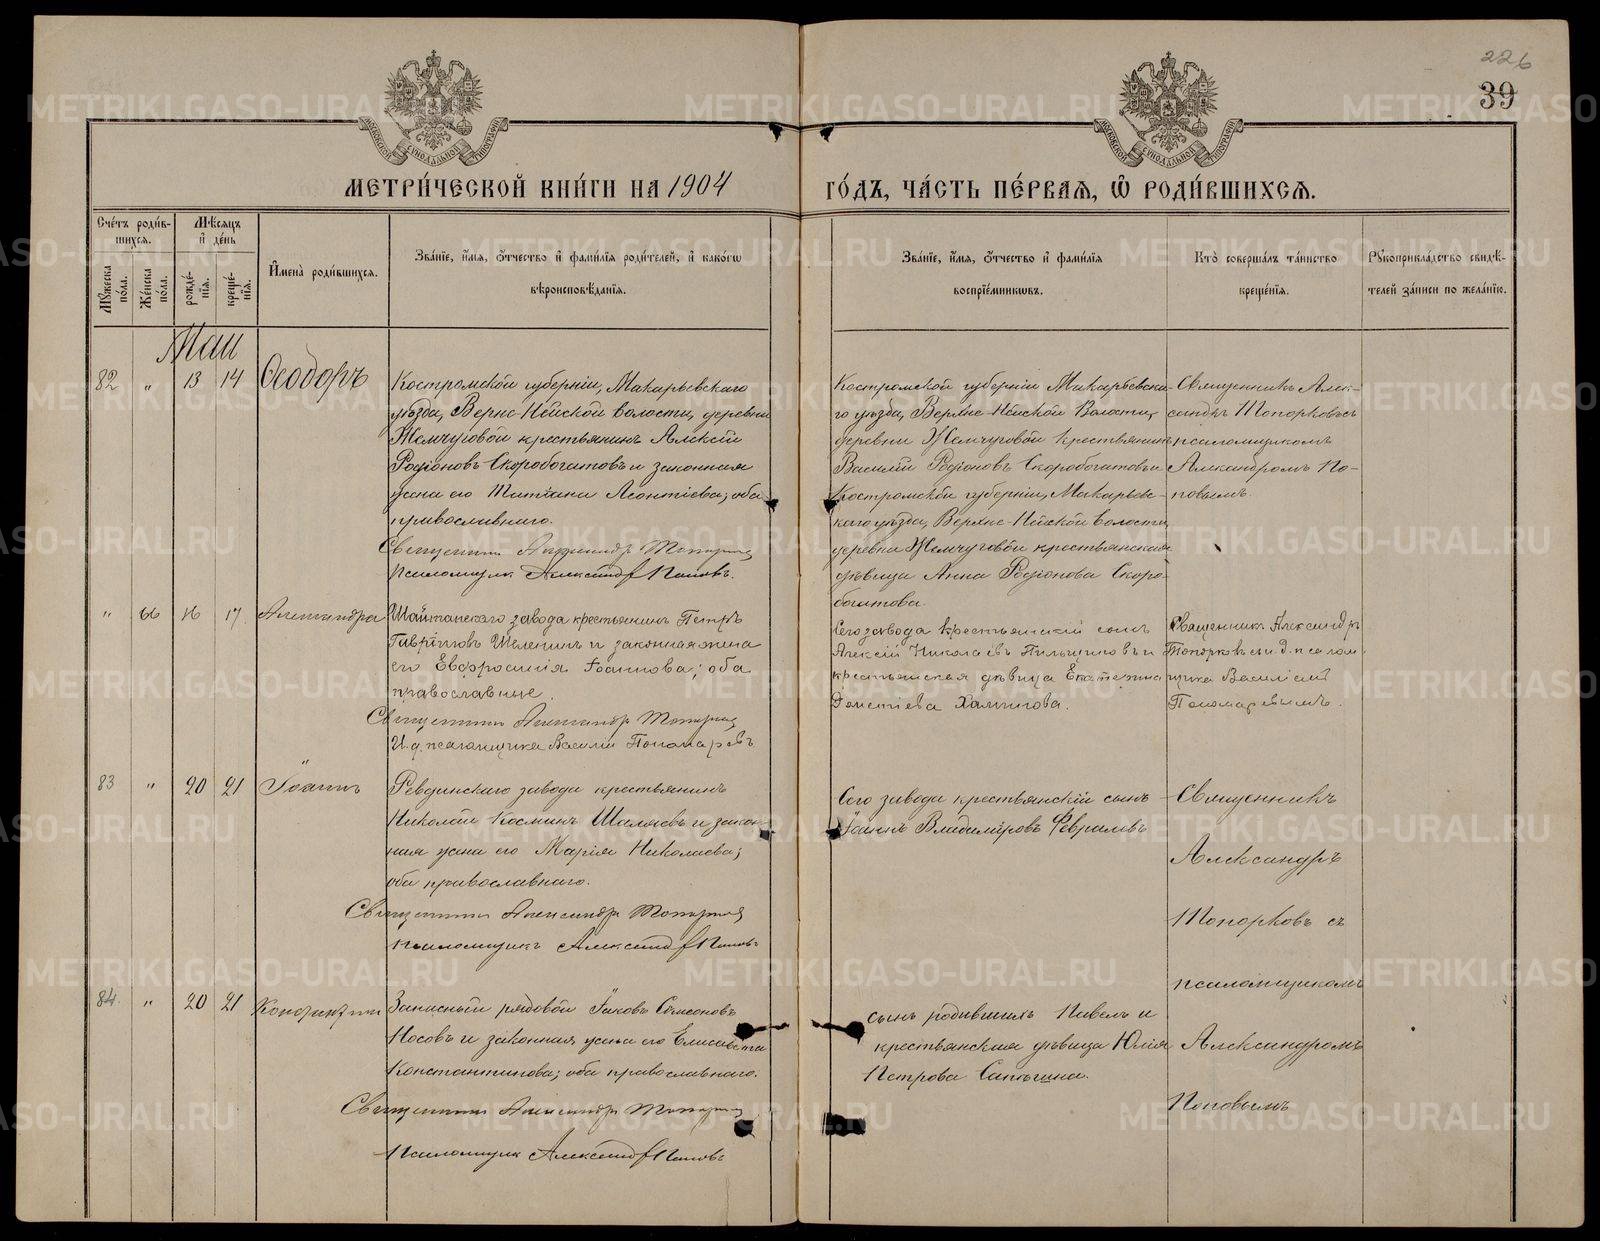 226
39
МЕТРИ́ЧЕСКОЙ КНИ́ГИ НА 1904
ГО́ДЪ, ЧА́СТЬ ПЕ́РВАѦ, Ѽ РОДИ́ВШИХСѦ.
Сче́тъ роди́в-
шихсѧ.
Мѣ́сѧцъ
и҆ де́нь
Мꙋ́жеска по́ла.
Же́нска по́ла.
рожде́-
нїѧ.
креще́-
нїѧ.
И҆мена̀ роди́вшихсѧ.
Зва́нїе, и҆́мѧ, ѻ҆́тчество и҆ фами́лїѧ роди́телей, и҆ како́гѡ
вѣроисповѣ́данїѧ.
Зва́нїе, и҆́мѧ, ѻ҆́тчество и҆ фами́лїѧ
воспрїе́мникѡвъ.
Кто̀ соверша́лъ та́инство
креще́нїѧ.
Рꙋкоприкла́дство свидѣ́-
телей за́писи по жела́нїю.
Май
82 " 13 14 Ѳеодоръ
Костромской губерніи, Макарьевскаго
уѣзда, Верхне-Нейской волости, деревни
Жемчуговой крестьянинъ Алексій
Родіоновъ Скоробогатовъ и законная
жена его Татіана Леонтіева; оба
православнаго.
Священникъ Александръ Топорковъ
Псаломщикъ Александръ Поповъ.
Костромской губерніи Макарьевска-
го уѣзда, Верхне-Нейской Волости,
деревни Жемчуговой крестьянинъ
Василій Родіоновъ Скоробогатовъ и
Костромской губерніи, Макарьевс-
каго уѣзда, Верхне-Нейской волости,
деревни Жемчуговой крестьянская
дѣвица Анна Родіонова Скоро-
богатова.
Священникъ Алек-
сандръ Топорковъ съ
псаломщикомъ
Александромъ По-
повымъ.
" 66 16 17 Александра
Шайтанскаго завода крестьянинъ Петръ
Гавріиловъ Шеленинъ и законная жена
его Евфросинія Іоаннова; оба
православные.
Священникъ Александръ Топорковъ
И. д. псаломщика Василій Пономаревъ
Сего завода крестьянскій сынъ
Алексій Николаевъ Пильщиковъ и
крестьянская дѣвица Екатерина
Халтигова.
Священникъ Александръ
Топорковъ съ и. д. псалом-
щика Василіемъ
Пономаревымъ.
83 " 20 21 Іоаннъ
Ревдинскаго завода крестьянинъ
Николай Космичъ Шаляевъ и закон-
ная жена его Марія Николаева;
оба православнаго.
Священникъ Александръ Топорковъ
Псаломщикъ Александръ Поповъ
Сего завода крестьянскій сынъ
Іоаннъ Владиміровъ Февралевъ
Священникъ
Александръ
Топорковъ съ
псаломщикомъ
Александромъ
Поповымъ
84. " 20 21 Константинъ
Запасный рядовой Іаковъ Самсоновъ
Носовъ и законная жена его Елисавета
Константинова; оба православнаго.
Священникъ Александръ Топорковъ
Псаломщикъ Александръ Поповъ
сынъ родившихъ Павелъ и
крестьянская дѣвица Юлія
Петрова Сапегина.
METRIKI.GASO-URAL.RU